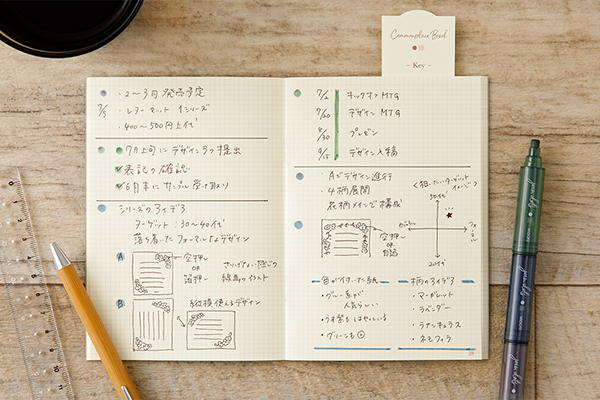 Commonplace Book
- Key -
・2〜3月 発売予定
7/5
・レターセット 1シリーズ
・400〜500円上代
7月上旬にデザインラフ提出
表記の確認
6月末にサンプル受け取り
シリーズのアイデア
ターゲット：30〜40代
落ち着いたフォーマルなデザイン
A
空押し
OR
箔押し
さりげない感じで
線画のイラスト
B
縦横使えるデザイン
7/2 キックオフMTG
7/20 デザインMTG
8/30 プレゼン
9/15 デザイン入稿
・Aでデザイン進行
・4柄展開
花柄メインで構成
空押し
OR
<狙いたいターゲットイメージ>
50代
20代
色が付いた紙
・グレー系が
人気らしい
・うす紫もはやっている
・グリーンも◎
柄のアイデア
・マーガレット
・ラベンダー
・ラナンキュラス
・ネモフィラ